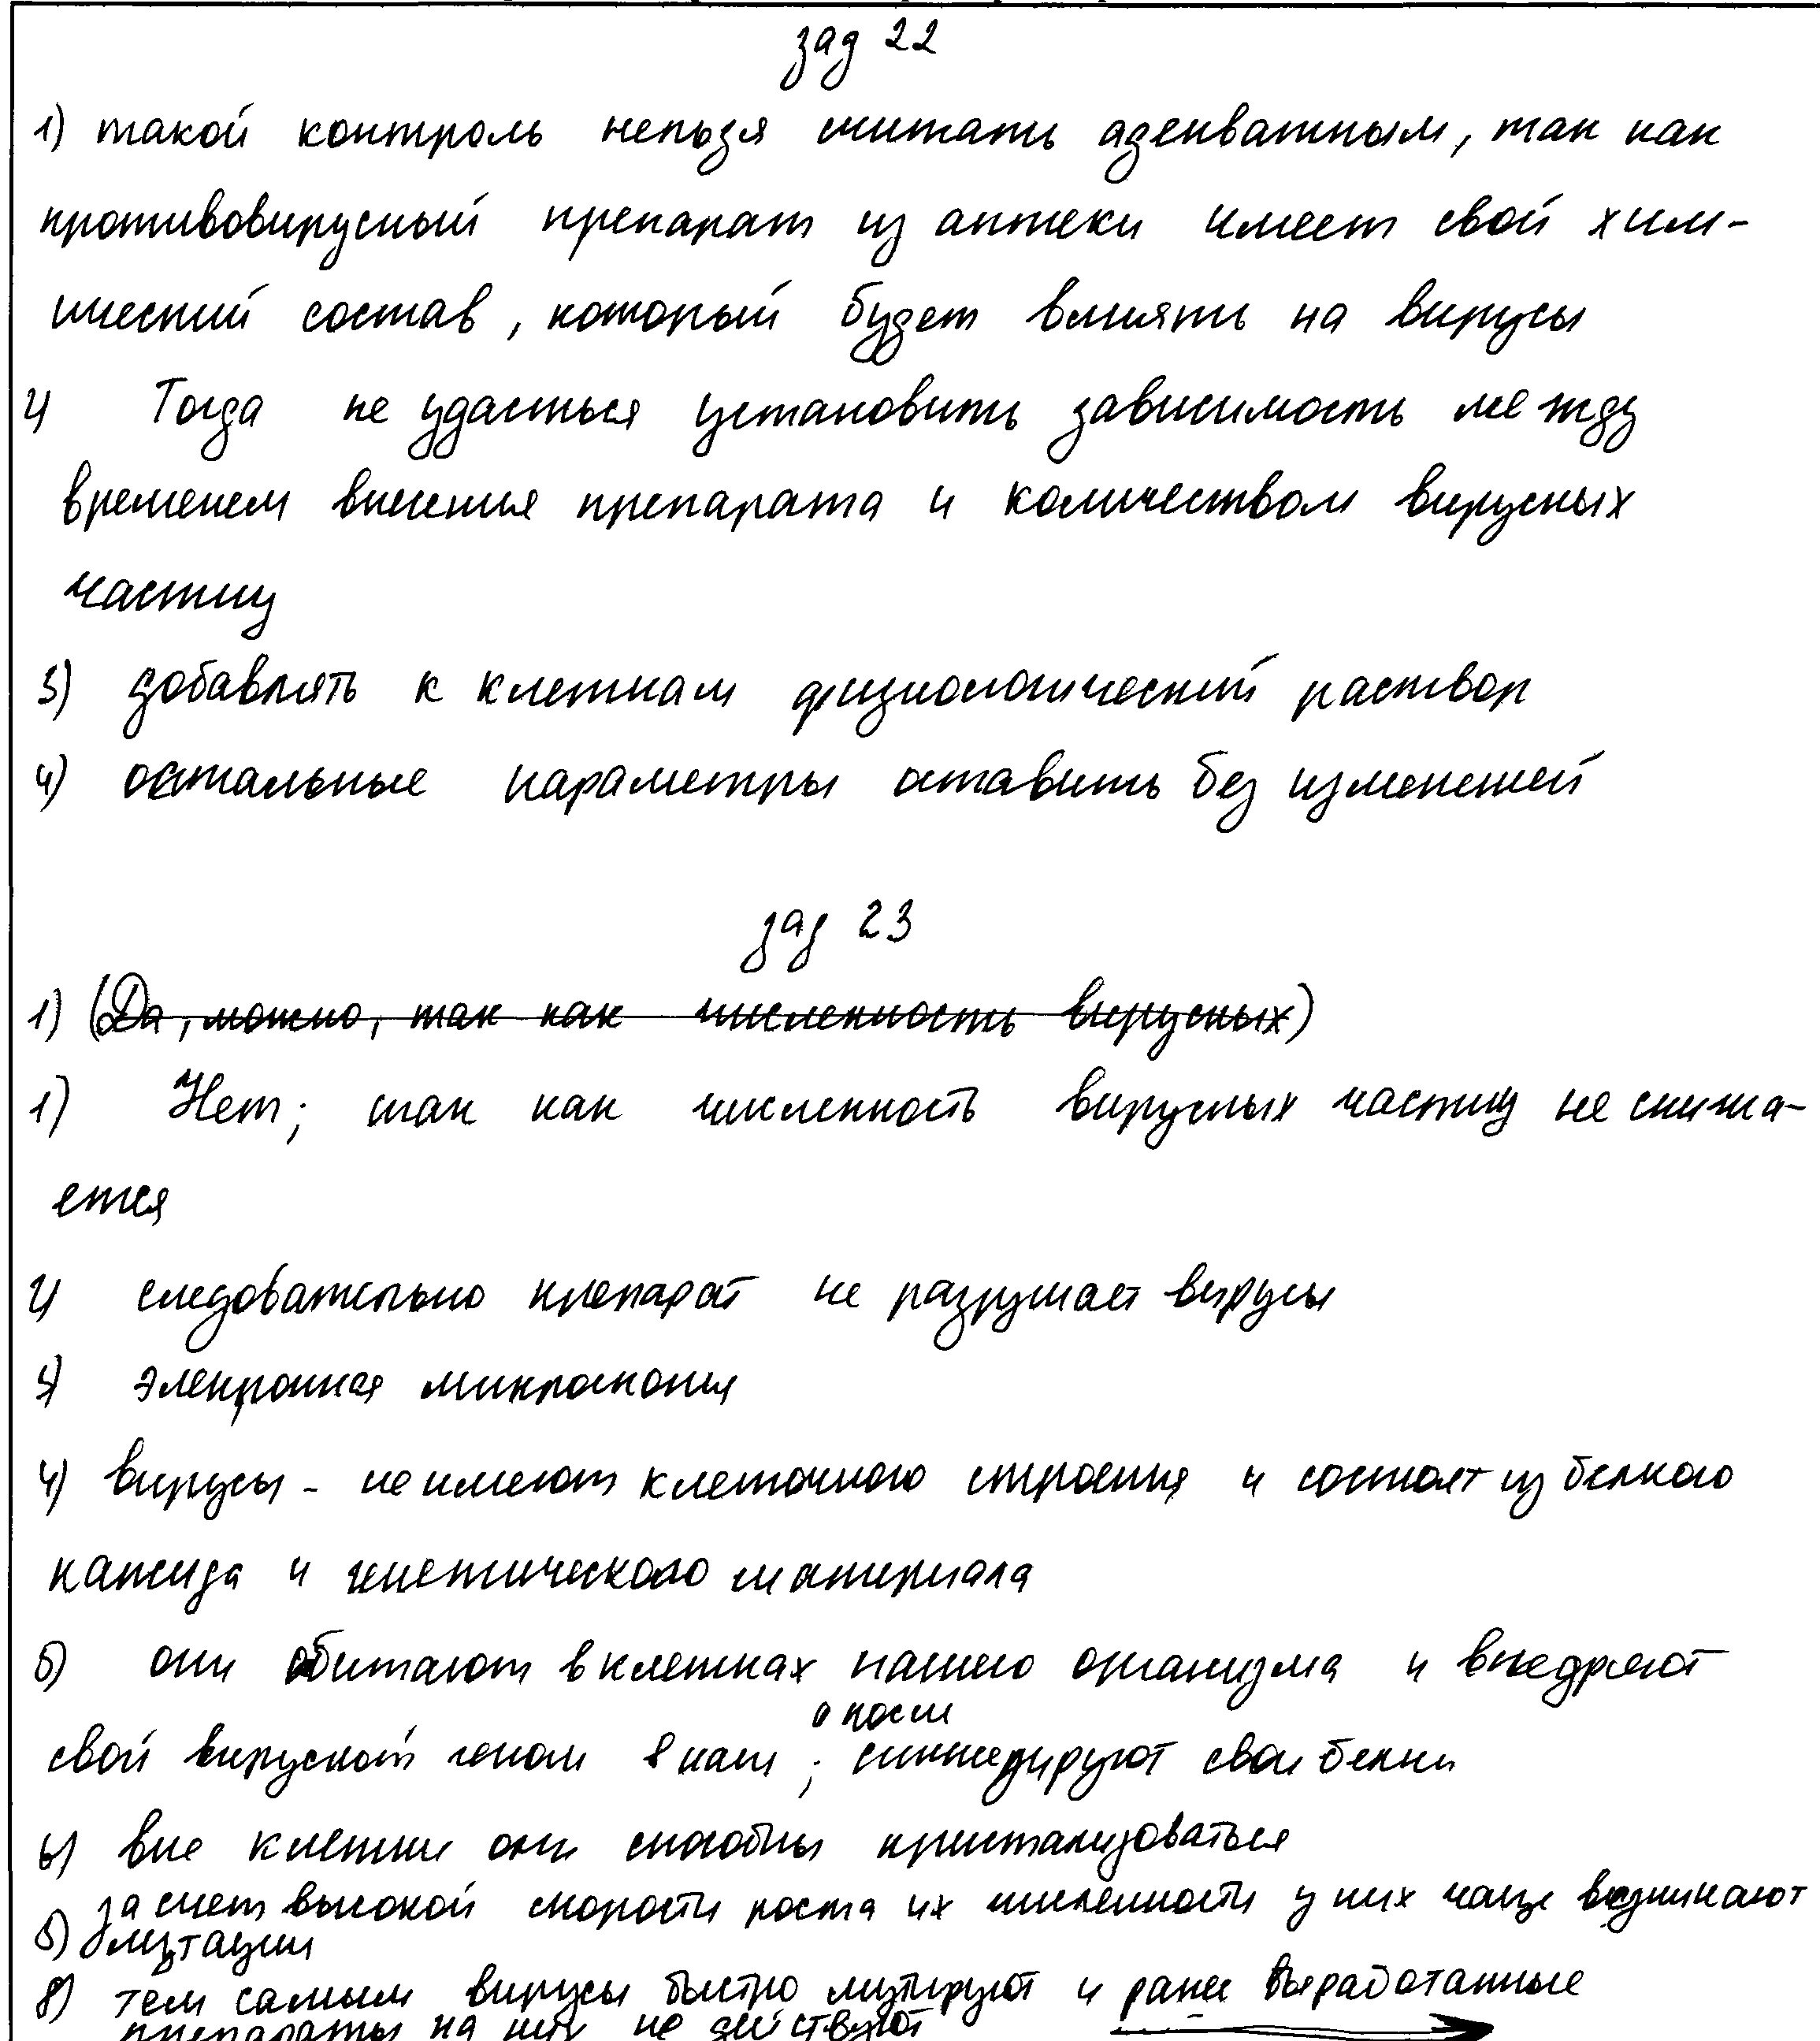 зад 22
1) такой контроль нельзя считать адекватным, так как
противовирусный препарат из аптеки имеет свой хим-
ический состав, который будет влиять на вирусы
2) Тогда не удасться установить зависимость между
временем внесения препарата и количеством вирусных
частиц
3) добавлять к клеткам физиологический раствор
4) остальные параметры оставить без изменений
зад 23
1) (Да, можно, так как численность вирусных)
1) Нет; так как численность вирусных частиц не снижа-
ется
2) следовательно препарат не разрушает вирусы
3) электронная микроскопия
4) вирусы - не имеют клеточного строения и состоят из белкого
капсида и генетического материала
5) они обитают в клетках нашего организма и внедряют
а после
свой вирусной геном в наш ; синтезируют свои белки
6) вне клетки они способны кристализоваться
за счет высокой скорости роста их численности у них чаще возникают
5) мутации
8) тем самым вирусы быстро мутируют и ранее выработанные
препараты на них не действуют